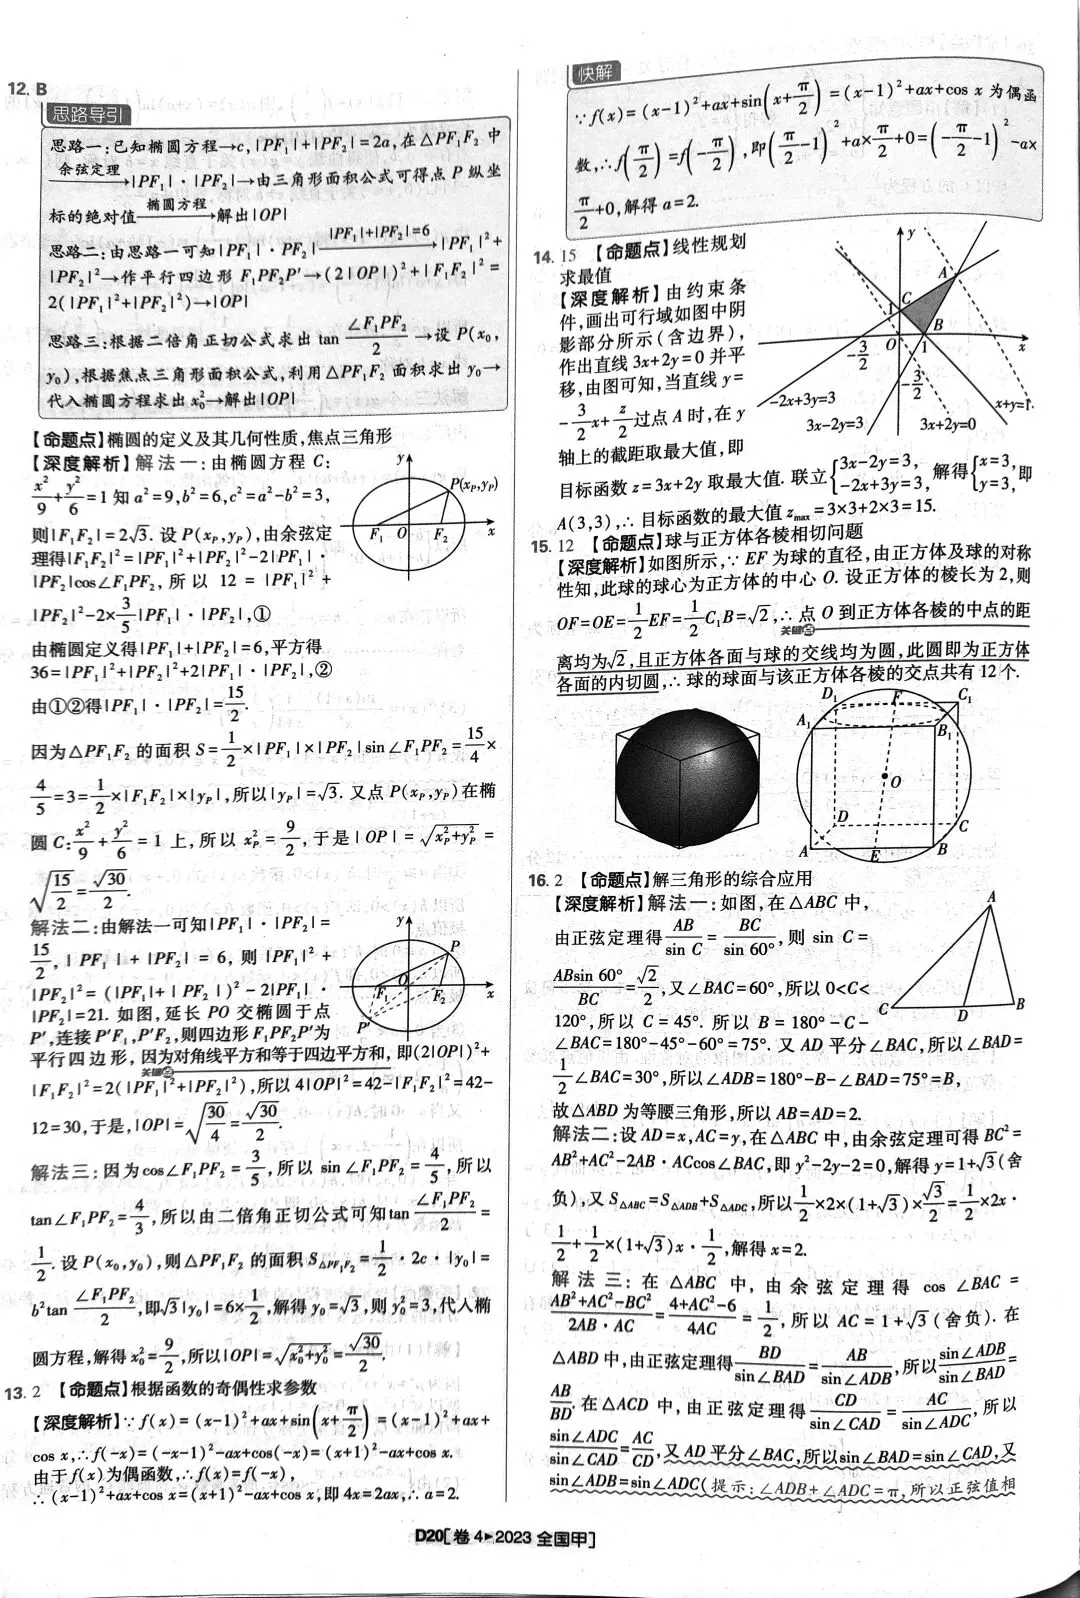 12. B
思路导引
思路一:已知椭圆方程→c,|PF₁|+|PF₂|=2a,在△PF₁F₂中
余弦定理→|PF₁|·|PF₂|→由三角形面积公式可得点P纵坐
标的绝对值 椭圆方程→解出|OP|
思路二:由思路一可知|PF₁|·|PF₂| |PF₁|+|PF₂|=6→|PF₁|²+
|PF₂|²→作平行四边形F₁PF₂P'→(2|OP|)²+|F₁F₂|²=
2(|PF₁|²+|PF₂|²)→|OP|
思路三:根据二倍角正切公式求出tan ∠F₁PF₂/2→设P(x₀,
y₀),根据焦点三角形面积公式,利用△PF₁F₂面积求出y₀→
代入椭圆方程求出x₀²→解出|OP|
【命题点】椭圆的定义及其几何性质,焦点三角形
【深度解析】解法一:由椭圆方程C:
x²/9+y²/6=1知a²=9,b²=6,c²=a²-b²=3,
则|F₁F₂|=2√3. 设P(x_P,y_P),由余弦定
理得|F₁F₂|²=|PF₁|²+|PF₂|²-2|PF₁|·
|PF₂|cos∠F₁PF₂, 所以 12=|PF₁|²+
|PF₂|²-2×3/5|PF₁|·|PF₂|,①
由椭圆定义得|PF₁|+|PF₂|=6,平方得
36=|PF₁|²+|PF₂|²+2|PF₁|·|PF₂|,②
由①②得|PF₁|·|PF₂|=15/2.
y
P(x_P,y_P)
F₁ O F₂ x
因为△PF₁F₂的面积S=1/2×|PF₁|×|PF₂|sin∠F₁PF₂=15/4×
4/5=3=1/2×|F₁F₂|×|y_P|,所以|y_P|=√3. 又点P(x_P,y_P)在椭
圆C:x²/9+y²/6=1上,所以x_P²=9/2,于是|OP|=√(x_P²+y_P²)=
√(15/2)=√30/2.
解法二:由解法一可知|PF₁|·|PF₂|=
15/2,|PF₁|+|PF₂|=6,则|PF₁|²+
|PF₂|²=(|PF₁|+|PF₂|)²-2|PF₁|·
|PF₂|=21. 如图,延长PO交椭圆于点
P',连接P'F₁,P'F₂,则四边形F₁PF₂P'为
y
P
O
F₁ F₂ x
P'
平行四边形,因为对角线平方和等于四边平方和,即(2|OP|)²+
关键点
|F₁F₂|²=2(|PF₁|²+|PF₂|²),所以4|OP|²=42-|F₁F₂|²=42-
12=30,于是,|OP|=√(30/4)=√30/2.
解法三:因为cos∠F₁PF₂=3/5,所以sin∠F₁PF₂=4/5,所以
tan∠F₁PF₂=4/3,所以由二倍角正切公式可知tan ∠F₁PF₂/2=
1/2. 设P(x₀,y₀),则△PF₁F₂的面积S△PF₁F₂=1/2·2c·|y₀|=
b²tan ∠F₁PF₂/2,即√3|y₀|=6×1/2,解得y₀=√3,则y₀²=3,代入椭
圆方程,解得x₀²=9/2,所以|OP|=√(x₀²+y₀²)=√30/2.
13. 2 【命题点】根据函数的奇偶性求参数
【深度解析】∵f(x)=(x-1)²+ax+sin(x+π/2)=(x-1)²+ax+
cos x,∴f(-x)=(-x-1)²-ax+cos(-x)=(x+1)²-ax+cos x.
由于f(x)为偶函数,∴f(x)=f(-x),
∴(x-1)²+ax+cos x=(x+1)²-ax+cos x,即4x=2ax,∴a=2.
快解
∵f(x)=(x-1)²+ax+sin(x+π/2)=(x-1)²+ax+cos x为偶函
数,∴f(π/2)=f(-π/2),即(π/2-1)²+a×π/2+0=(-π/2-1)²-a×
π/2+0,解得a=2.
14. 15 【命题点】线性规划
求最值
【深度解析】由约束条
件,画出可行域如图中阴
影部分所示(含边界),
作出直线3x+2y=0并平
移,由图可知,当直线y=
-3/2x+z/2过点A时,在y
轴上的截距取最大值,即
y
A
C
1
B
O 1 x
-3/2
-3/2
-2x+3y=3
3x-2y=3
3x+2y=0
x+y=1
目标函数z=3x+2y取最大值. 联立{3x-2y=3, -2x+3y=3, 解得{x=3, y=3, 即
A(3,3),∴目标函数的最大值z_max=3×3+2×3=15.
15. 12 【命题点】球与正方体各棱相切问题
【深度解析】如图所示,∵EF为球的直径,由正方体及球的对称
性知,此球的球心为正方体的中心O. 设正方体的棱长为2,则
OF=OE=1/2EF=1/2C₁B=√2,∴点O到正方体各棱的中点的距
关键点
离均为√2,且正方体各面与球的交线均为圆,此圆即为正方体
各面的内切圆,∴球的球面与该正方体各棱的交点共有12个.
D₁ F C₁
A₁ B₁
O
D C
A E B
16. 2 【命题点】解三角形的综合应用
【深度解析】解法一:如图,在△ABC中,
由正弦定理得AB/sin C=BC/sin 60°,则sin C=
ABsin 60°/BC=√2/2,又∠BAC=60°,所以0<C<
120°,所以C=45°. 所以B=180°-C-
A
C D B
∠BAC=180°-45°-60°=75°. 又AD平分∠BAC,所以∠BAD=
1/2∠BAC=30°,所以∠ADB=180°-B-∠BAD=75°=B,
故△ABD为等腰三角形,所以AB=AD=2.
解法二:设AD=x,AC=y,在△ABC中,由余弦定理可得BC²=
AB²+AC²-2AB·ACcos∠BAC,即y²-2y-2=0,解得y=1+√3(舍
负),又S△ABC=S△ADB+S△ADC,所以1/2×2×(1+√3)×√3/2=1/2×2x·
1/2+1/2×(1+√3)x·1/2,解得x=2.
解法三:在△ABC中,由余弦定理得cos∠BAC=
AB²+AC²-BC²/2AB·AC=4+AC²-6/4AC=1/2,所以AC=1+√3(舍负). 在
△ABD中,由正弦定理得BD/sin∠BAD=AB/sin∠ADB,所以sin∠ADB/sin∠BAD=
AB/BD. 在△ACD中,由正弦定理得CD/sin∠CAD=AC/sin∠ADC,所以
sin∠ADC/sin∠CAD=AC/CD,又AD平分∠BAC,所以sin∠BAD=sin∠CAD,又
sin∠ADB=sin∠ADC(提示:∠ADB+∠ADC=π,所以正弦值相
D20[卷4▶2023全国甲]